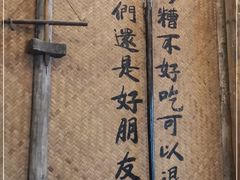 糟不好吃可以退
們還是好朋友